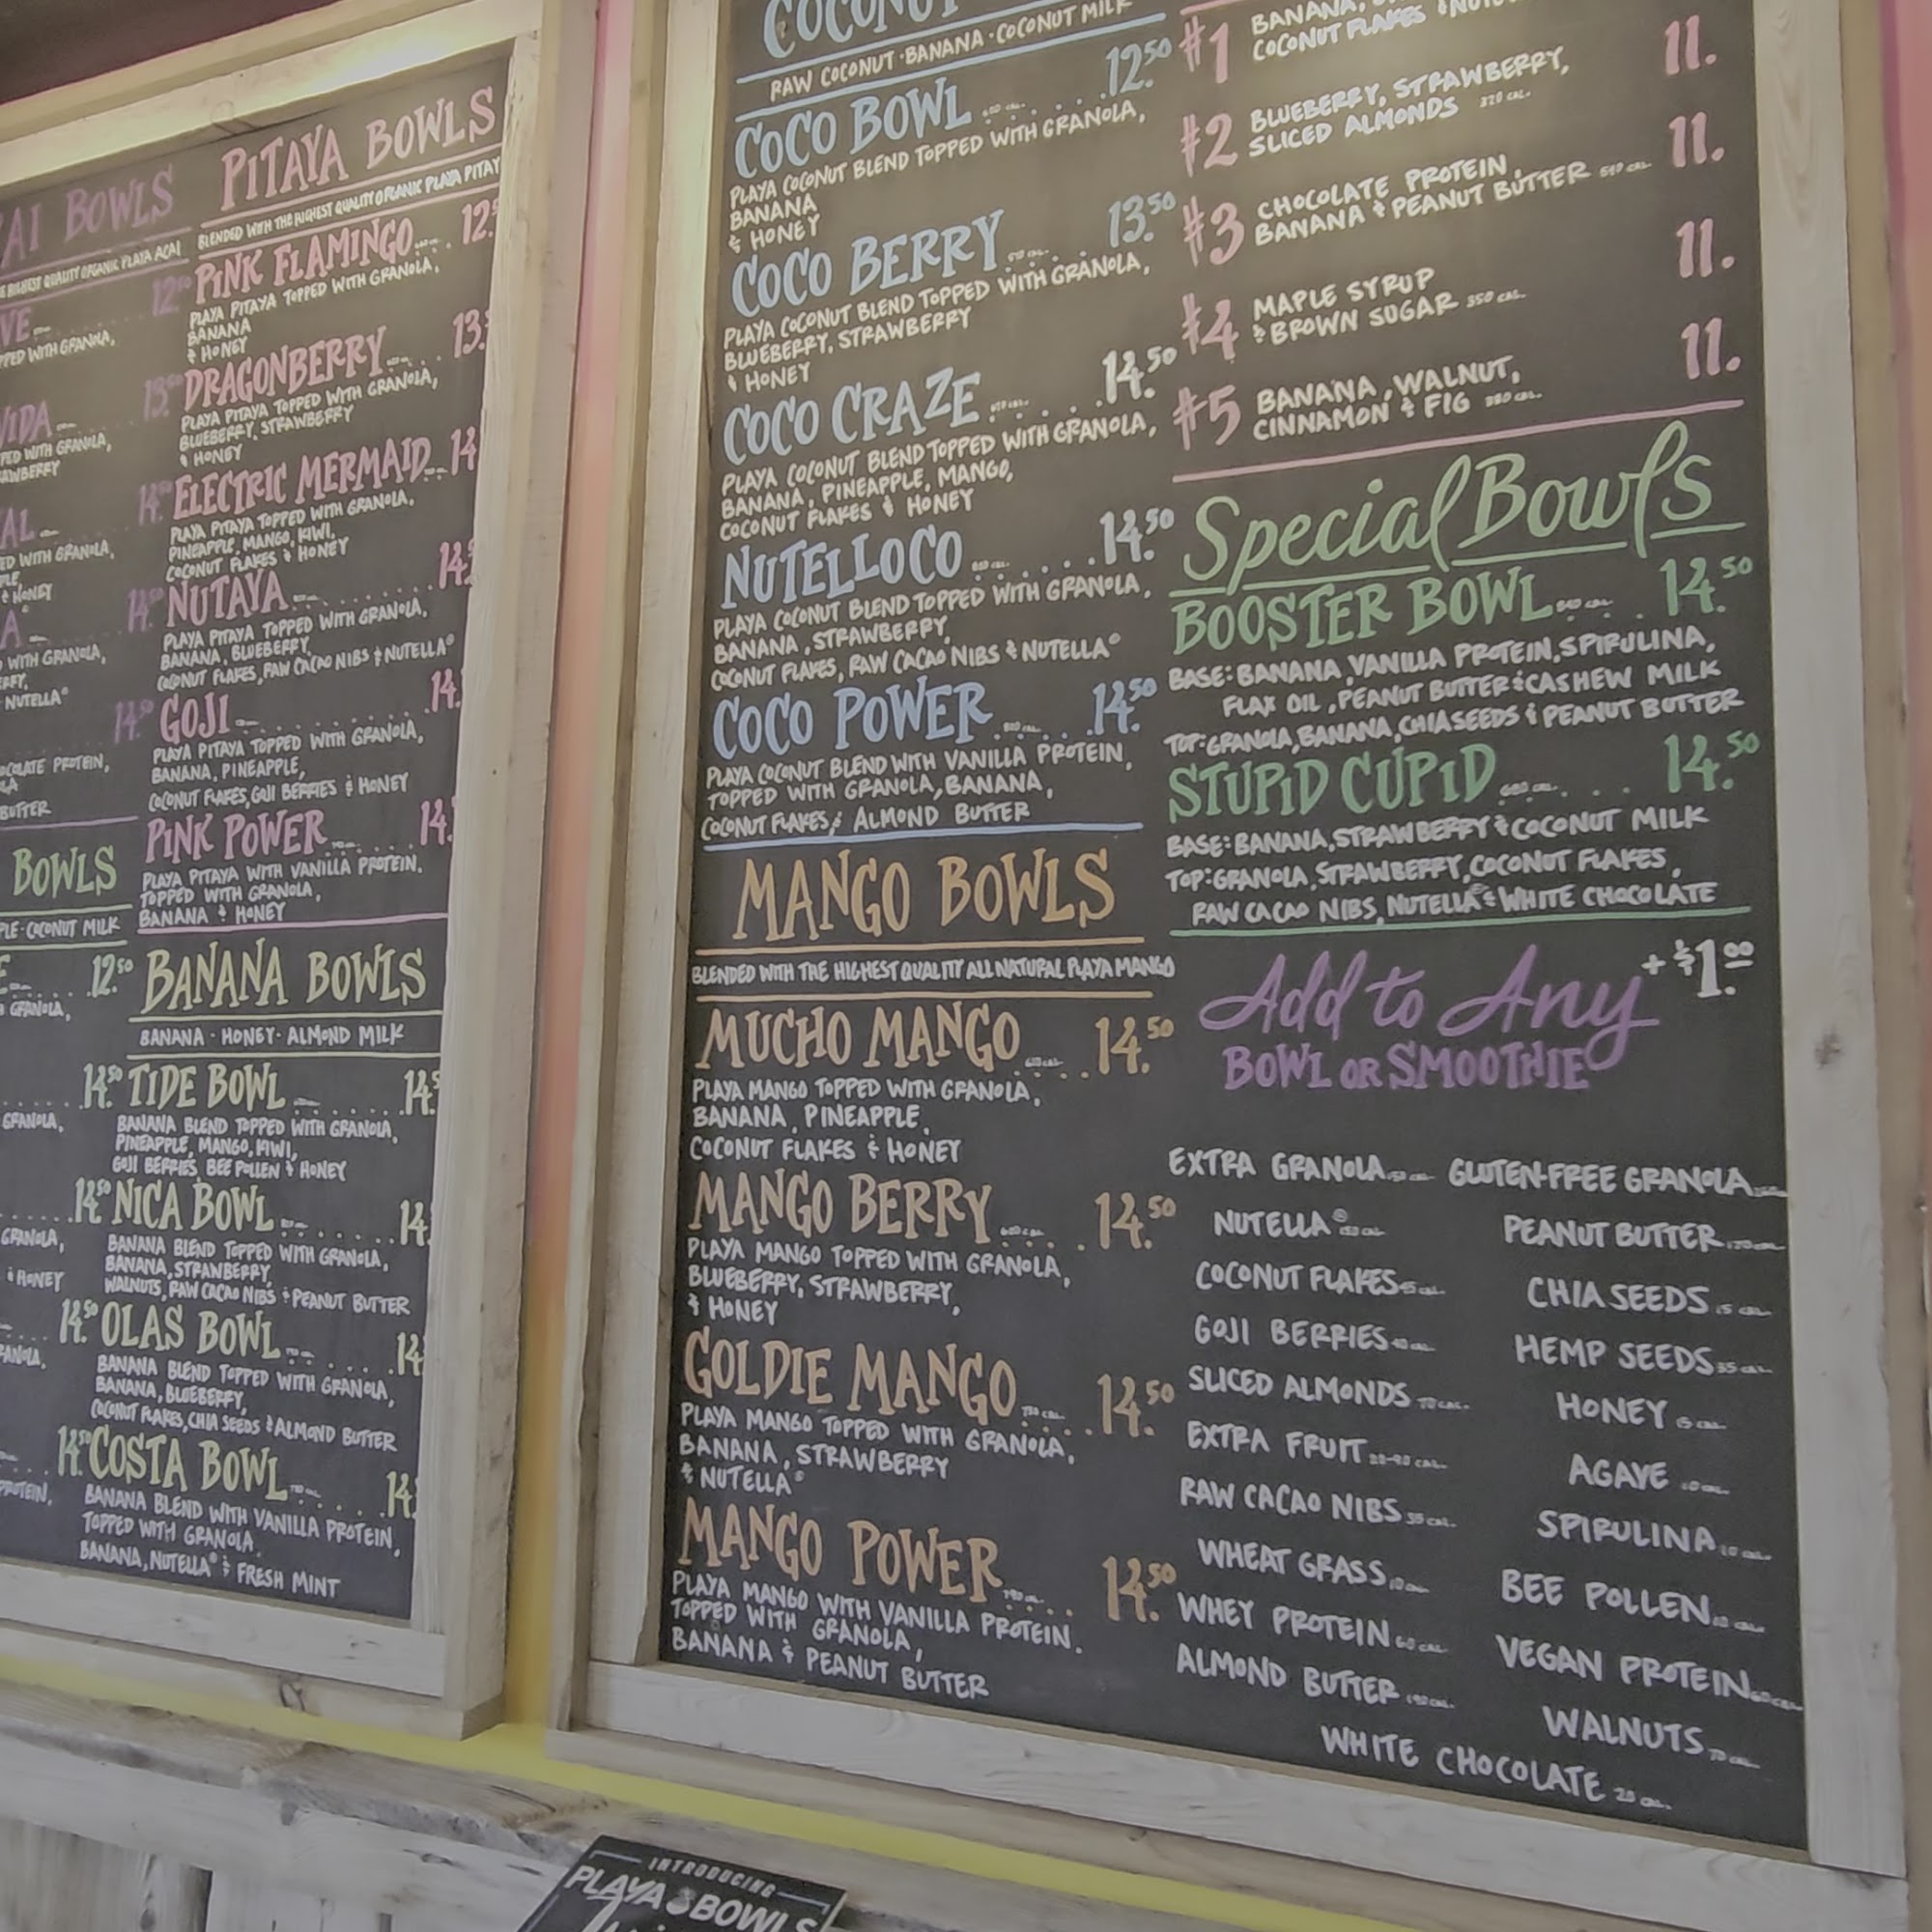 AI BOWLS
HIGHEST QUALITY ORGANIC PLAYA ACAI
12.50
WITH GRANOLA,
13.50
WITH GRANOLA,
14.50
WITH GRANOLA,
& HONEY
14.50
WITH GRANOLA,
NUTELLA®
14.50
CHOCOLATE PROTEIN,
BUTTER
BOWLS
COCONUT MILK
12.50
GRANOLA,
14.50
GRANOLA,
14.50
GRANOLA,
& HONEY
14.50
GRANOLA,
14.50
PROTEIN,
PITAYA BOWLS
BLENDED WITH THE HIGHEST QUALITY ORGANIC PLAYA PITAY
PINK FLAMINGO 12.
PLAYA PITAYA TOPPED WITH GRANOLA,
BANANA
& HONEY
DRAGONBERRY 13.
PLAYA PITAYA TOPPED WITH GRANOLA,
BLUEBERRY, STRAWBERRY
& HONEY
ELECTRIC MERMAID 14
PLAYA PITAYA TOPPED WITH GRANOLA,
PINEAPPLE, MANGO, KIWI,
COCONUT FLAKES & HONEY
NUTAYA 14.
PLAYA PITAYA TOPPED WITH GRANOLA,
BANANA, BLUEBERRY,
COCONUT FLAKES, RAW CACAO NIBS & NUTELLA®
GOJI 14.
PLAYA PITAYA TOPPED WITH GRANOLA,
BANANA, PINEAPPLE,
COCONUT FLAKES, GOJI BERRIES & HONEY
PINK POWER 14.
PLAYA PITAYA WITH VANILLA PROTEIN,
TOPPED WITH GRANOLA,
BANANA & HONEY
BANANA BOWLS
BANANA · HONEY · ALMOND MILK
TIDE BOWL 14.
BANANA BLEND TOPPED WITH GRANOLA,
PINEAPPLE, MANGO, KIWI,
GOJI BERRIES, BEE POLLEN & HONEY
NICA BOWL 14.
BANANA BLEND TOPPED WITH GRANOLA,
BANANA, STRAWBERRY,
WALNUTS, RAW CACAO NIBS & PEANUT BUTTER
OLAS BOWL 14
BANANA BLEND TOPPED WITH GRANOLA,
BANANA, BLUEBERRY,
COCONUT FLAKES, CHIA SEEDS & ALMOND BUTTER
COSTA BOWL 14.
BANANA BLEND WITH VANILLA PROTEIN,
TOPPED WITH GRANOLA,
BANANA, NUTELLA® & FRESH MINT
COCONUT
RAW COCONUT · BANANA · COCONUT MILK
COCO BOWL 12.50
PLAYA COCONUT BLEND TOPPED WITH GRANOLA,
BANANA
& HONEY
COCO BERRY 13.50
PLAYA COCONUT BLEND TOPPED WITH GRANOLA,
BLUEBERRY, STRAWBERRY
& HONEY
COCO CRAZE 14.50
PLAYA COCONUT BLEND TOPPED WITH GRANOLA,
BANANA, PINEAPPLE, MANGO,
COCONUT FLAKES & HONEY
NUTELLOCO 14.50
PLAYA COCONUT BLEND TOPPED WITH GRANOLA,
BANANA, STRAWBERRY,
COCONUT FLAKES, RAW CACAO NIBS & NUTELLA®
COCO POWER 14.50
PLAYA COCONUT BLEND WITH VANILLA PROTEIN,
TOPPED WITH GRANOLA, BANANA,
COCONUT FLAKES, & ALMOND BUTTER
MANGO BOWLS
BLENDED WITH THE HIGHEST QUALITY ALL NATURAL PLAYA MANGO
MUCHO MANGO 14.50
PLAYA MANGO TOPPED WITH GRANOLA,
BANANA, PINEAPPLE,
COCONUT FLAKES & HONEY
MANGO BERRY 14.50
PLAYA MANGO TOPPED WITH GRANOLA,
BLUEBERRY, STRAWBERRY,
& HONEY
GOLDIE MANGO 14.50
PLAYA MANGO TOPPED WITH GRANOLA,
BANANA, STRAWBERRY
& NUTELLA®
MANGO POWER 14.50
PLAYA MANGO WITH VANILLA PROTEIN,
TOPPED WITH GRANOLA,
BANANA & PEANUT BUTTER
#1 BANANA,
COCONUT FLAKES 11.
#2 BLUEBERRY, STRAWBERRY,
SLICED ALMONDS 320 CAL. 11.
#3 CHOCOLATE PROTEIN,
BANANA & PEANUT BUTTER 11.
#4 MAPLE SYRUP
& BROWN SUGAR 350 CAL. 11.
#5 BANANA, WALNUT,
CINNAMON & FIG 11.
Special Bowls
BOOSTER BOWL 14.50
BASE: BANANA, VANILLA PROTEIN, SPIRULINA,
FLAX OIL, PEANUT BUTTER & CASHEW MILK
TOP: GRANOLA, BANANA, CHIA SEEDS & PEANUT BUTTER
STUPID CUPID 14.50
BASE: BANANA, STRAWBERRY & COCONUT MILK
TOP: GRANOLA, STRAWBERRY, COCONUT FLAKES,
RAW CACAO NIBS, NUTELLA® & WHITE CHOCOLATE
Add to Any + $1.00
BOWL OR SMOOTHIE
EXTRA GRANOLA GLUTEN-FREE GRANOLA
NUTELLA® PEANUT BUTTER
COCONUT FLAKES CHIA SEEDS 15 CAL.
GOJI BERRIES HEMP SEEDS 35 CAL.
SLICED ALMONDS 70 CAL. HONEY 15 CAL.
EXTRA FRUIT 20-90 CAL. AGAVE 10 CAL.
RAW CACAO NIBS 35 CAL. SPIRULINA 10 CAL.
WHEAT GRASS 10 CAL. BEE POLLEN
WHEY PROTEIN 60 CAL. VEGAN PROTEIN
ALMOND BUTTER 190 CAL. WALNUTS 70 CAL.
WHITE CHOCOLATE 25 CAL.
INTRODUCING
PLAYA BOWLS